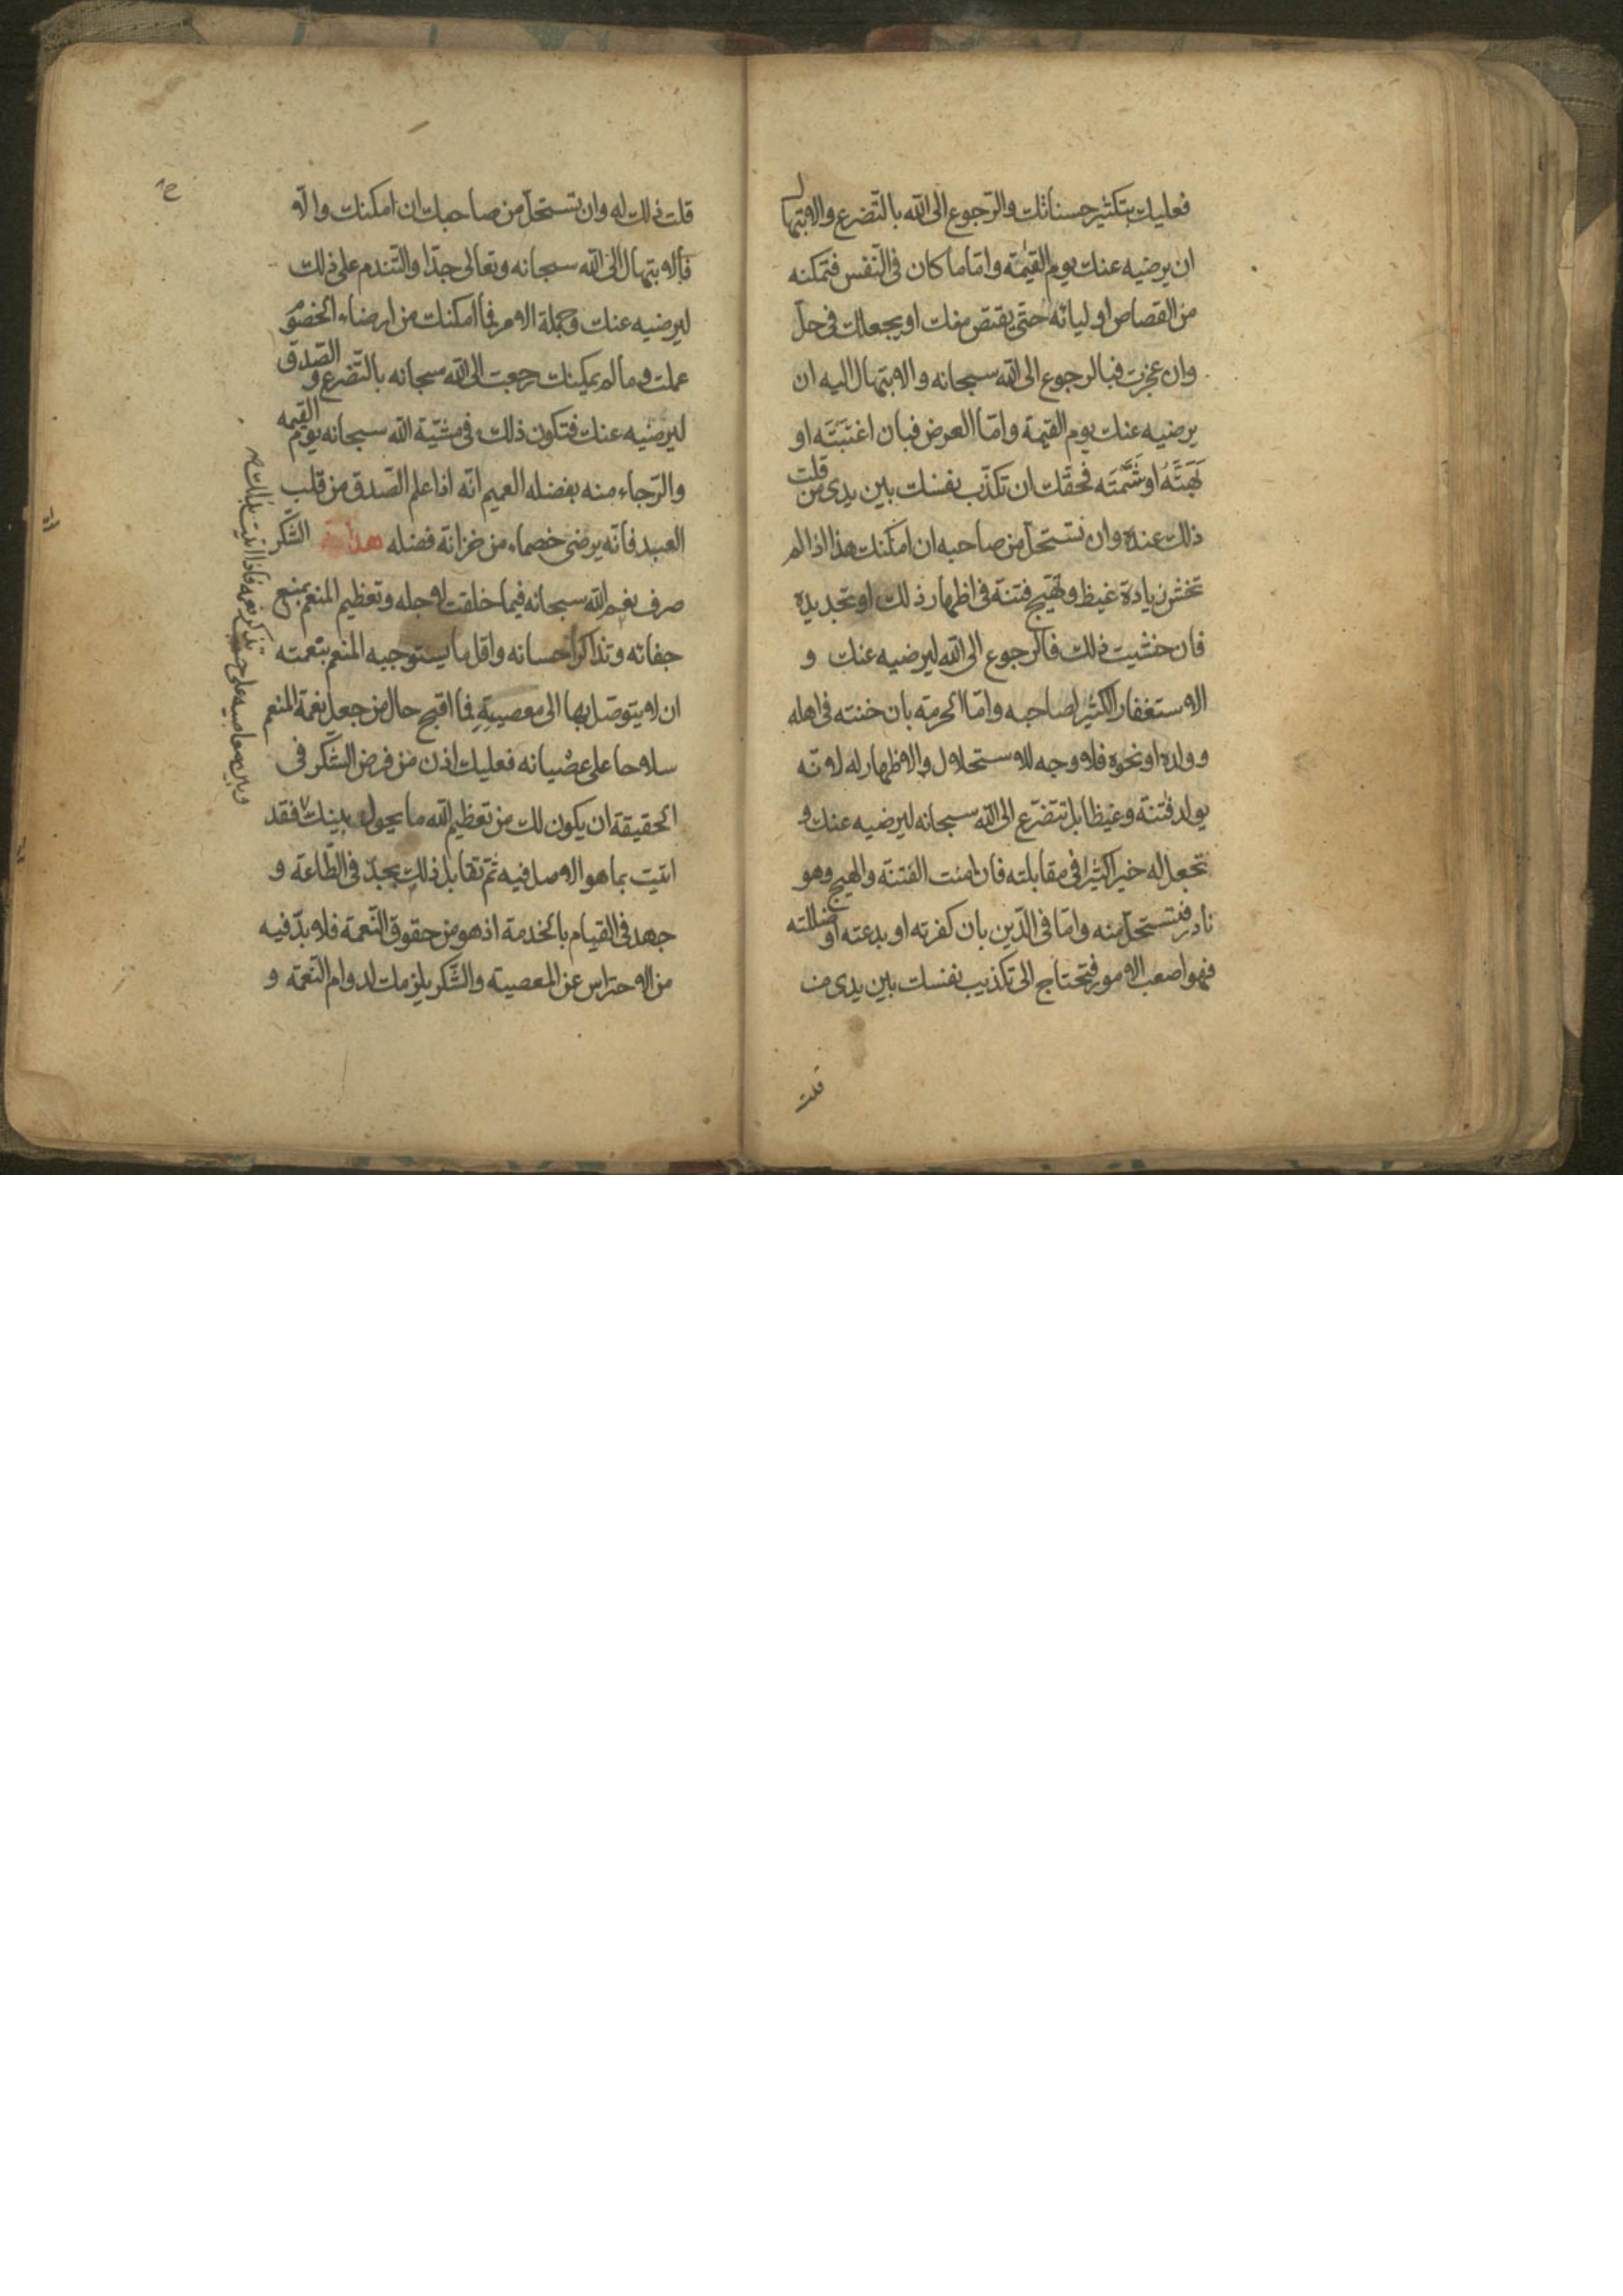 فعليك بتكثير حسناتك والرّجوع الى الله بالتّضرع والابتهال
ان يرضيه عنك يوم القيٰمة وامّا ما كان فى النّفس فتمكنه
من القصاص اولياءه حتى يقتص منك او يجعلك فى حلّ
وان عجزت فبالرجوع الى الله سبحانه والابتهال اليه ان
يرضيه عنك يوم القيمة وامّا العرض فبان اغتبته او
بَهَتَّهُ او شَتَمتَه فحقّك ان تكذّب نفسك بين يدى من قلت
ذلك عنده وان تستحلّ من صاحبه ان امكنك هذا اذا لم
تخش زيادة غيظ وتهيّج فتنة فى اظهار ذلك او تجديده
فان خشيت ذلك فالرجوع الى الله ليرضيه عنك و
الاستغفار الكثير لصاحبه وامّا الحرمة بان خنته فى اهله
وولده او نحوه فلا وجه للاستحلال والاظهار له لانّه
يولد فتنة وغيظا بل تتضرّع الى الله سبحانه ليرضيه عنك و
تجعل له خيرا كثيرا فى مقابلته فان امنت الفتنة والهيج وهو
نادر فتستحلّ منه وامّا فى الدّين بان كفرته او بدعته او ضللته
فهو اصعب الامور فتحتاج الى تكذيب نفسك بين يدى من
قلت
قلت ذلك له وان تستحلّ من صاحبك ان امكنك والّا
فبالابتهال الى الله سبحانه وتعالى جدّا والتّندم على ذلك
ليرضيه عنك وجملة الامر فما امكنك من ارضاء الخصوم
عملت وما لم يمكنك رجعت الى الله سبحانه بالتّضرع والصّدق
ليرضيه عنك فتكون ذلك فى مشيّة الله سبحانه يوم القيمه
والرّجاء منه بفضله العميم انّه اذا علم الصّدق من قلب
العبد فانّه يرضى خصماءه من خزانة فضله هداية الشّكر
صرف نعم الله سبحانه فيما خلقت لاجله وتعظيم المنعم بمنع
جفائه وتذاكر احسانه واقل ما يستوجبه المنعم بنعمته
ان لا يتوصّل بها الى معصيته فما اقبح حال من جعل نعمة المنعم
سلاحا على عصيانه فعليك اذن من فرض الشّكر فى
الحقيقة ان يكون لك من تعظيم الله ما يحول بينك فقد
اتيت بما هو الاصل فيه ثمّ تقابل ذلك بجدّ فى الطّاعة و
جهد فى القيام بالخدمة اذ هو من حقوق النّعمة فلا بدّ فيه
من الاحتراس عن المعصية والشّكر يلزمك لدوام النّعمة و
وبين معاصيه على حسب تذكر نعمه فاذا اتيت بذلك